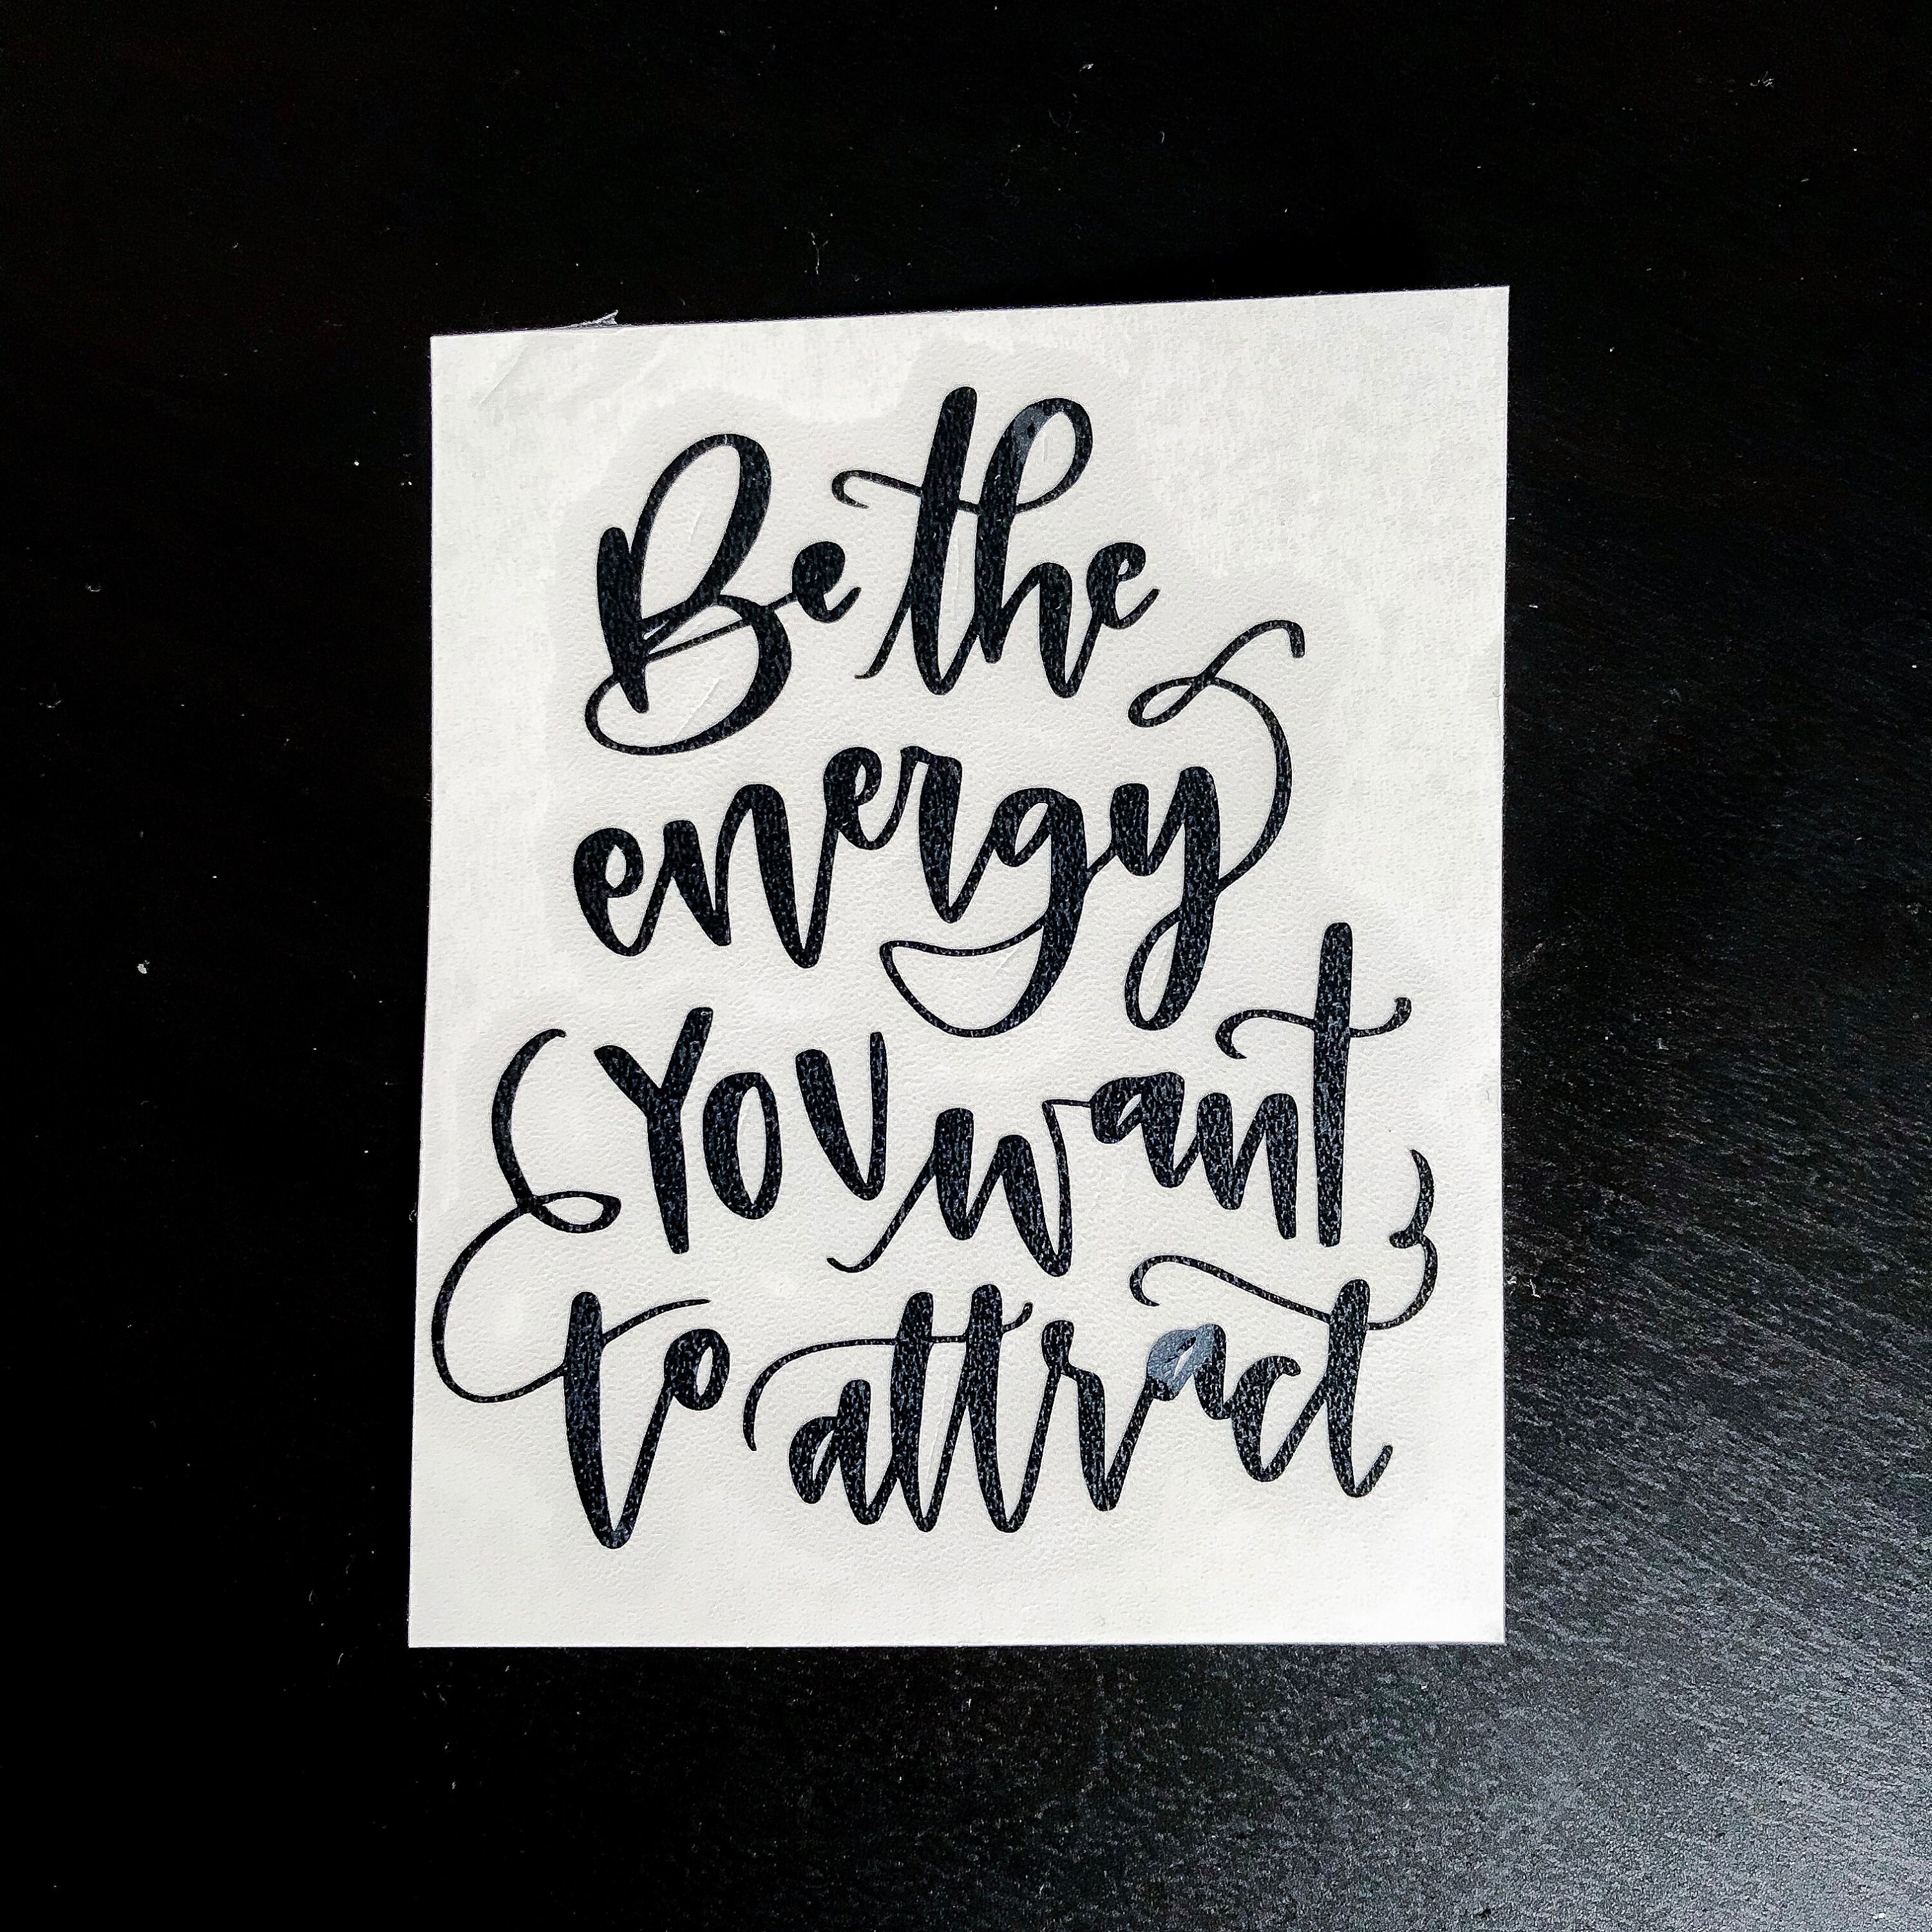 Be the
energy
You want
to attract